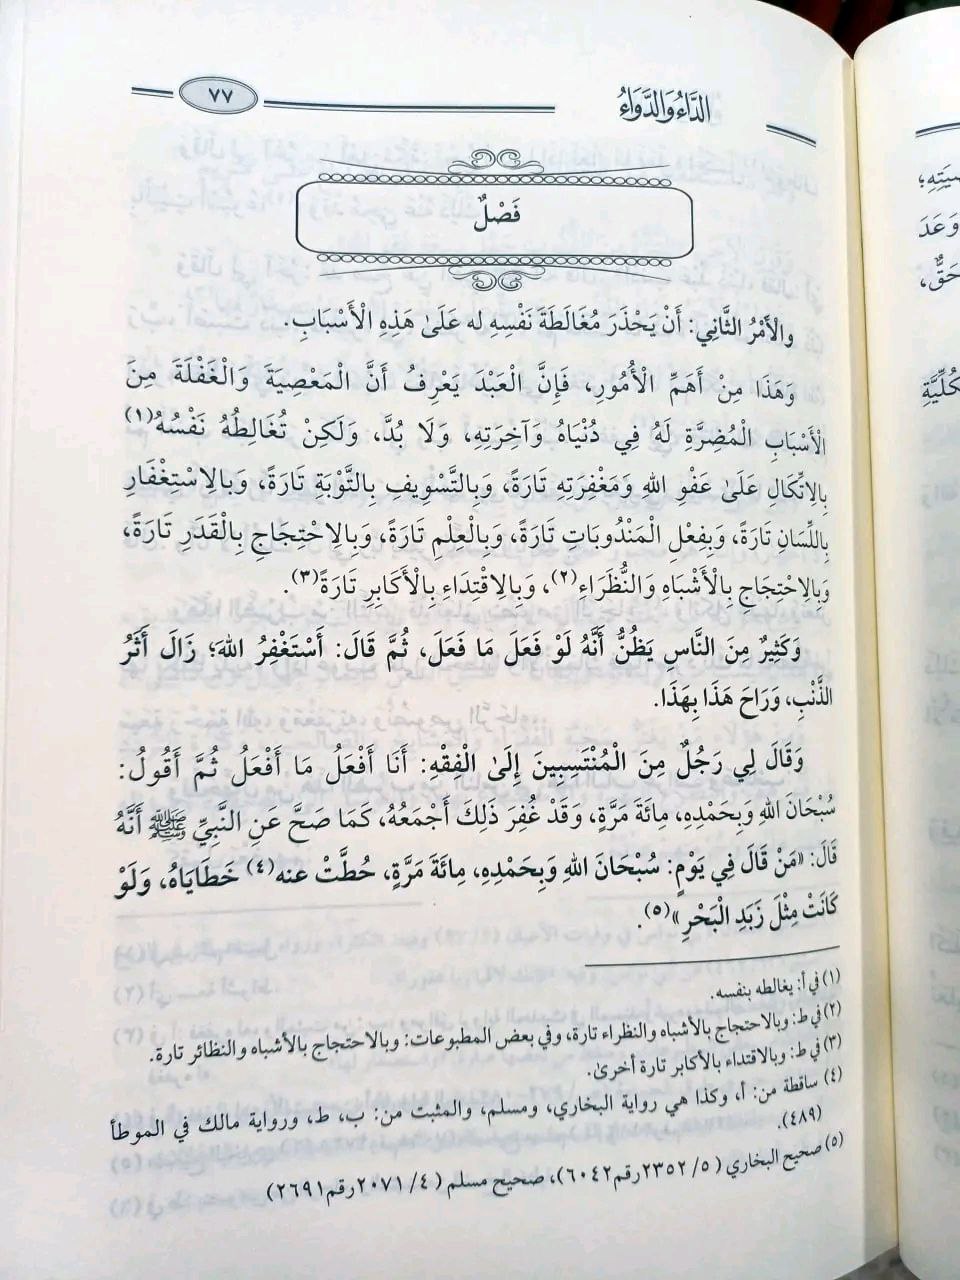 الدَّاءُ وَالدَّوَاءُ
٧٧
فَصْلٌ
والْأَمْرُ الثَّانِي: أَنْ يَحْذَرَ مُغَالَطَةَ نَفْسِهِ له عَلَىٰ هَذِهِ الْأَسْبَابِ.
وَهَذَا مِنْ أَهَمِّ الْأُمُورِ، فَإِنَّ الْعَبْدَ يَعْرِفُ أَنَّ الْمَعْصِيَةَ وَالْغَفْلَةَ مِنَ
الْأَسْبَابِ الْمُضِرَّةِ لَهُ فِي دُنْيَاهُ وَآخِرَتِهِ، وَلَا بُدَّ، وَلَكِنْ تُغَالِطُهُ نَفْسُهُ(١)
بِالِاتِّكَالِ عَلَىٰ عَفْوِ اللهِ وَمَغْفِرَتِهِ تَارَةً، وَبِالتَّسْوِيفِ بِالتَّوْبَةِ تَارَةً، وَبِالِاسْتِغْفَارِ
بِاللِّسَانِ تَارَةً، وَبِفِعْلِ الْمَنْدُوبَاتِ تَارَةً، وَبِالْعِلْمِ تَارَةً، وَبِالِاحْتِجَاجِ بِالْقَدَرِ تَارَةً،
وَبِالِاحْتِجَاجِ بِالْأَشْبَاهِ وَالنُّظَرَاءِ(٢)، وَبِالِاقْتِدَاءِ بِالْأَكَابِرِ تَارَةً(٣).
وَكَثِيرٌ مِنَ النَّاسِ يَظُنُّ أَنَّهُ لَوْ فَعَلَ مَا فَعَلَ، ثُمَّ قَالَ: أَسْتَغْفِرُ اللهَ؛ زَالَ أَثَرُ
الذَّنْبِ، وَرَاحَ هَذَا بِهَذَا.
وَقَالَ لِي رَجُلٌ مِنَ الْمُنْتَسِبِينَ إِلَىٰ الْفِقْهِ: أَنَا أَفْعَلُ مَا أَفْعَلُ ثُمَّ أَقُولُ:
سُبْحَانَ اللهِ وَبِحَمْدِهِ، مِائَةَ مَرَّةٍ، وَقَدْ غُفِرَ ذَلِكَ أَجْمَعُهُ، كَمَا صَحَّ عَنِ النَّبِيِّ ﷺ أَنَّهُ
قَالَ: «مَنْ قَالَ فِي يَوْمٍ: سُبْحَانَ اللهِ وَبِحَمْدِهِ، مِائَةَ مَرَّةٍ، حُطَّتْ عنه(٤) خَطَايَاهُ، وَلَوْ
كَانَتْ مِثْلَ زَبَدِ الْبَحْرِ»(٥).
(١) في أ: يغالطه بنفسه.
(٢) في ط: وبالاحتجاج بالأشباه والنظراء تارة، وفي بعض المطبوعات: وبالاحتجاج بالأشباه والنظائر تارة.
(٣) في ط: وبالاقتداء بالأكابر تارة أخرىٰ.
(٤) ساقطة من: أ، وكذا هي رواية البخاري، ومسلم، والمثبت من: ب، ط، ورواية مالك في الموطأ
(٤٨٩).
(٥) صحيح البخاري (٥/ ٢٣٥٢رقم٦٠٤٢)، صحيح مسلم (٤/ ٢٠٧١رقم٢٦٩١)
وَعَدَ
حَقٌّ،